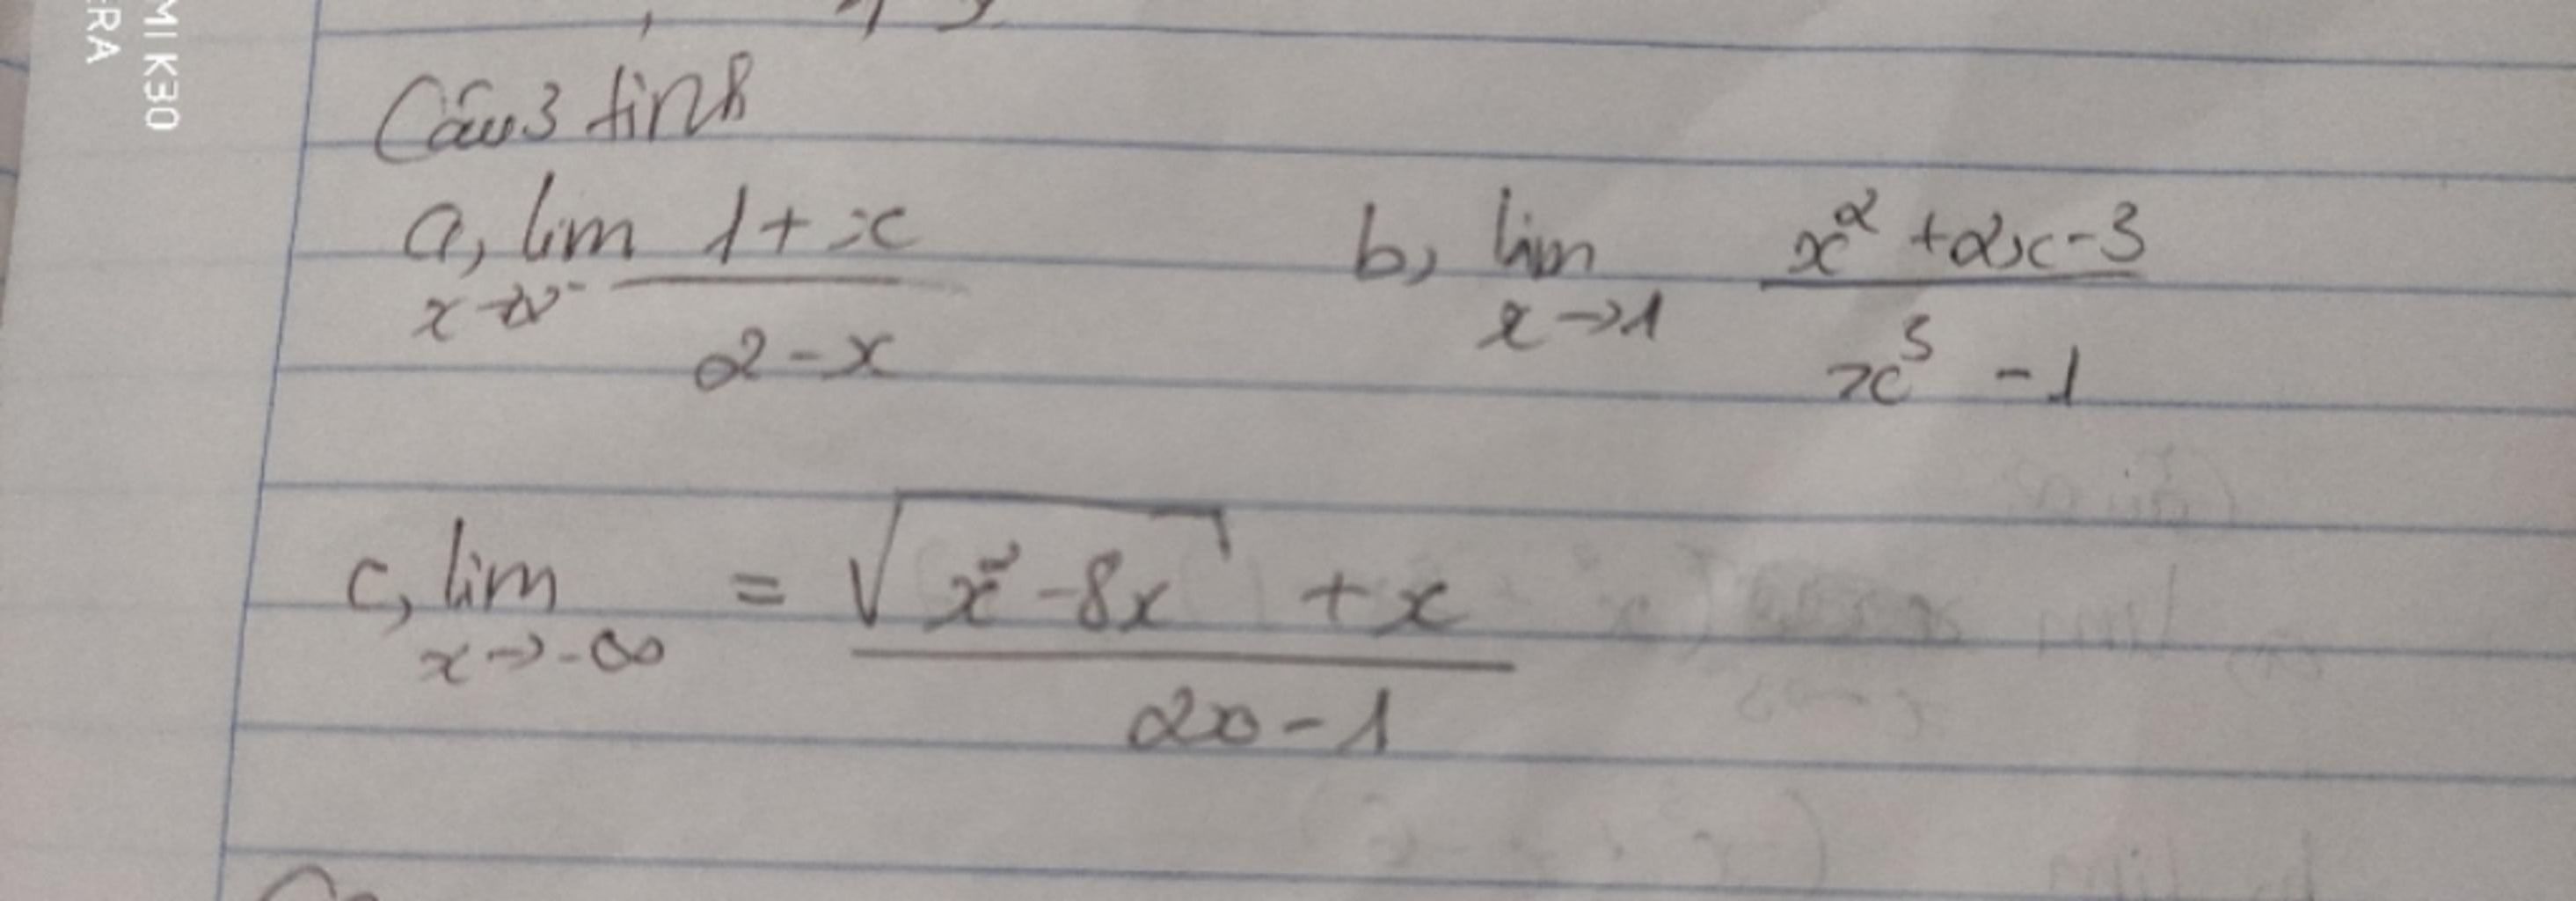 MI K30
ERA
Câu 3 tính
a, lim 1 + x
x → 2⁻ 2 - x
b, lim x² + 2x - 3
x → 1 x³ - 1
c, lim = √x² - 8x + x
x → -∞ 2x - 1